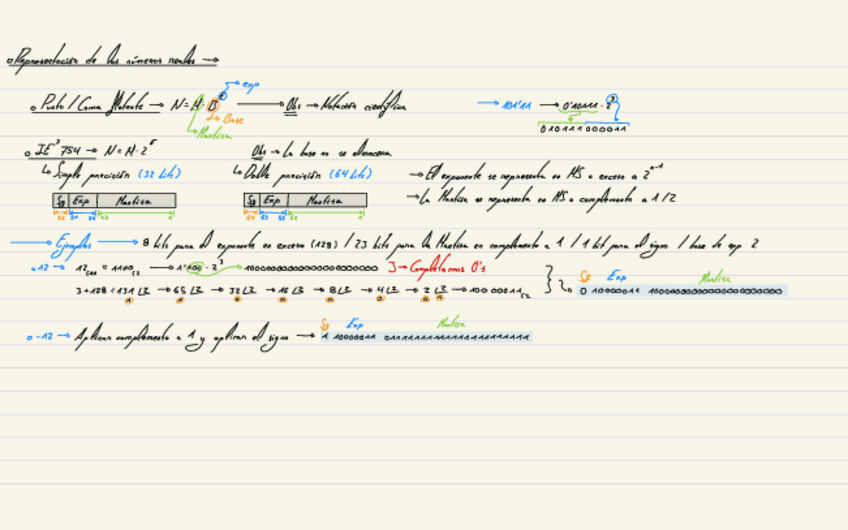 Representación de los números reales →
Punto / Coma flotante → N = M · B^e → exp → Obs → Notación científica → 101'11 → 0'10111 · 2^3
→ Base
→ Mantisa
010111 000011
IE³ 754 → N = M · 2^E Obs → La base no se almacena
↳ Simple precisión (32 bits) ↳ Doble precisión (64 bits) → El exponente se representa en MS o exceso a 2^n-1
Sg Exp Mantisa Sg Exp Mantisa → La Mantisa se representa en MS o complemento a 1/2
→ Ejemplos → 8 bits para el exponente en exceso (128) / 23 bits para la Mantisa en complemento a 1 / 1 bit para el signo / base de exp 2
12 → → 1'100 · 2^3 → Completamos 0's
Sg Exp Mantisa
3+128 = 131 |2 → 65 |2 → 32 |2 → 16 |2 → 8 |2 → 4 |2 → 2 |2 → 10000011 0 10000011
-12 → Aplican complemento a 1 y aplican el signo → Sg Exp Mantisa